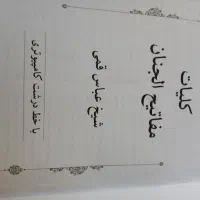 کلیات
مفاتیح الجنان
شیخ عباس قمی
با خط درشت کامپیوتری